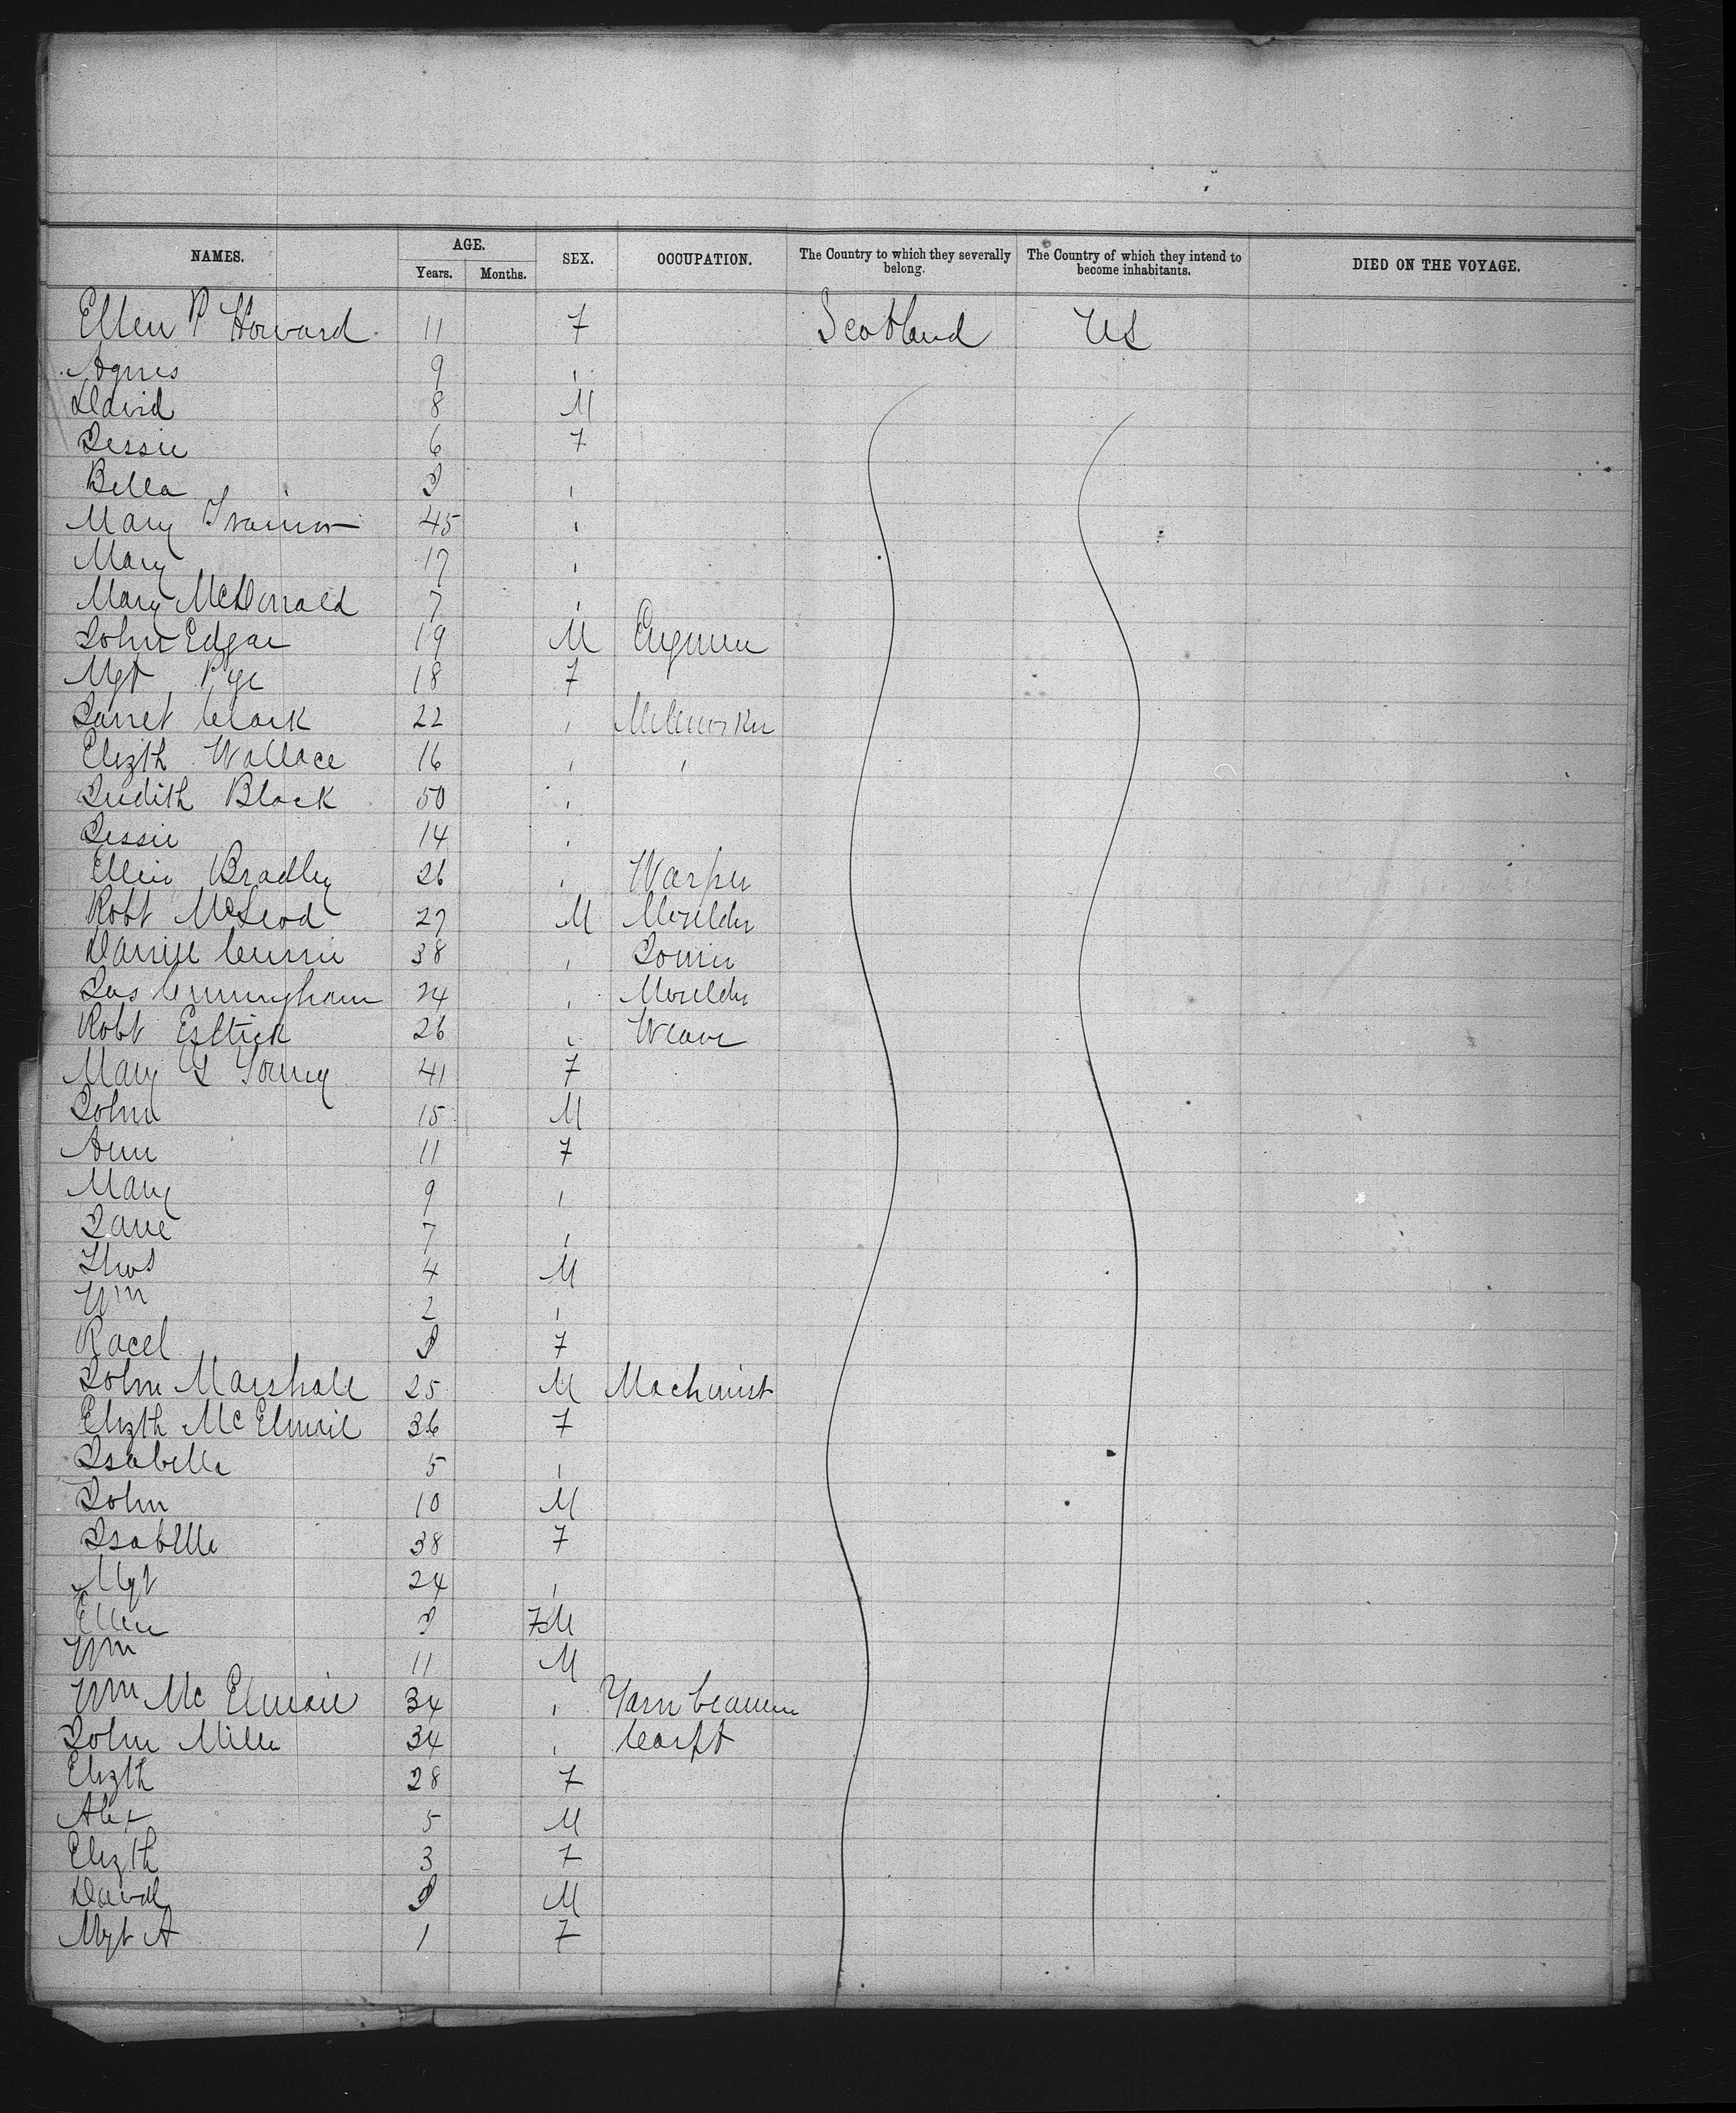 NAMES. AGE. SEX. OCCUPATION. The Country to which they severally belong. The Country of which they intend to become inhabitants. DIED ON THE VOYAGE.
Years. Months.
Ellen P Howard 11 F Scotland US
Agnes 9 "
David 8 M
Jessie 6 F
Bella "
Mary 45 "
Mary 17 "
Mary McDonald 7 "
John Edgar 19 M Engineer
Mgt Pye 18 F
Janet Clark 22 " Millworker
Elizth Wallace 16 " "
Judith Black 50 "
Jessie 14 "
Ellen Bradley 26 " Warper
Robt McLeod 27 M Moulder
Daniel Currie 38 " Joiner
Jas Cunningham 24 " Moulder
Robt 26 " Weaver
Mary G Young 41 F
John 15 M
Ann 11 F
Mary 9 "
Jane 7 "
Thos 4 M
Wm 2 "
Racel F
John Marshall 25 M Machinist
Elizth McElmoil 36 F
Isabella 5 "
John 10 M
Isabella 38 F
Mgt 24 "
Ellen FM
Wm 11 M
Wm McElmoil 34 " Yarn beamer
John Miller 34 " Carpt
Elizth 28 F
Alex 5 M
Elizth 3 F
David M
Mgt A 1 F